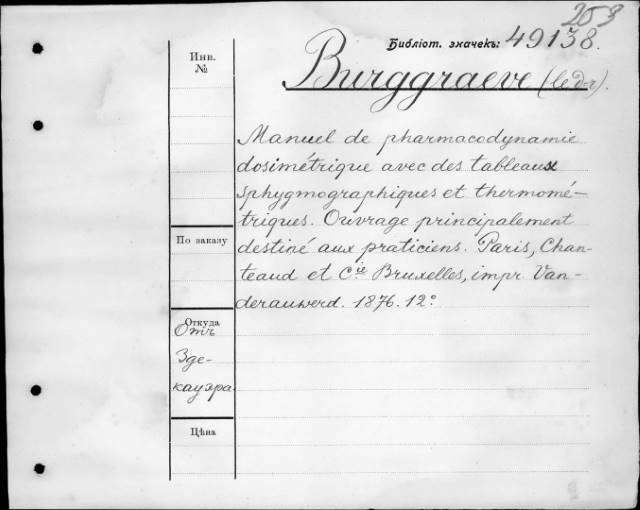 253
Библіот. значекъ: 49138.
Инв.
№
Burggraeve (le d-r).
Manuel de pharmacodynamie
dosimétrique avec des tableaux
sphygmographiques et thermomé-
triques. Ouvrage principalement
destiné aux praticiens. Paris, Chan-
teaud et Cie Bruxelles, impr. Van-
derauwerd. 1876. 12°
По заказу
Откуда
Отъ
Зде-
кауэра
Цѣна